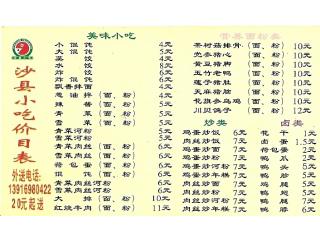 沙县小吃价目表
外送电话:
13916980422
20元起送
美味小吃
小馄饨 4元
大馄饨 5元
蒸饺 4元
水饺 5元
炸饺 6元
炸馄饨 6元
飘香拌面 4元
葱油拌(面、粉) 4元
辣酱(面、粉) 5元
青菜(面、粉) 5元
雪菜(面、粉) 5元
青菜河粉 5元
雪菜河粉 5元
青菜肉丝(面、粉) 6元
雪菜肉丝(面、粉) 6元
荷包蛋(面、粉) 6元
青菜肉丝河粉 6元
雪菜肉丝河粉 6元
大排(面、粉) 10元
红烧牛肉(面、粉) 11元
营养面粉类
茶树菇排骨(面、粉) 10元
党参猪心(面、粉) 10元
黄豆猪脚(面、粉) 10元
五竹老鸭(面、粉) 10元
莲子猪肚(面、粉) 10元
天麻猪脑(面、粉) 10元
花旗参乌鸡(面、粉) 10元
川贝鸽子(面、粉) 12元
炒类
鸡蛋炒饭 6元
肉丝炒饭 7元
鸡蛋炒面 6元
鸡蛋炒粉 6元
肉丝炒面 7元
肉丝炒粉 7元
鸡蛋炒河粉 6元
肉丝炒河粉 7元
鸡蛋炒年糕 6元
肉丝炒年糕 7元
卤类
花干 1元
卤蛋 1.5元
荷包蛋 2元
鸭头
鸭
鸭
鸭
鸭